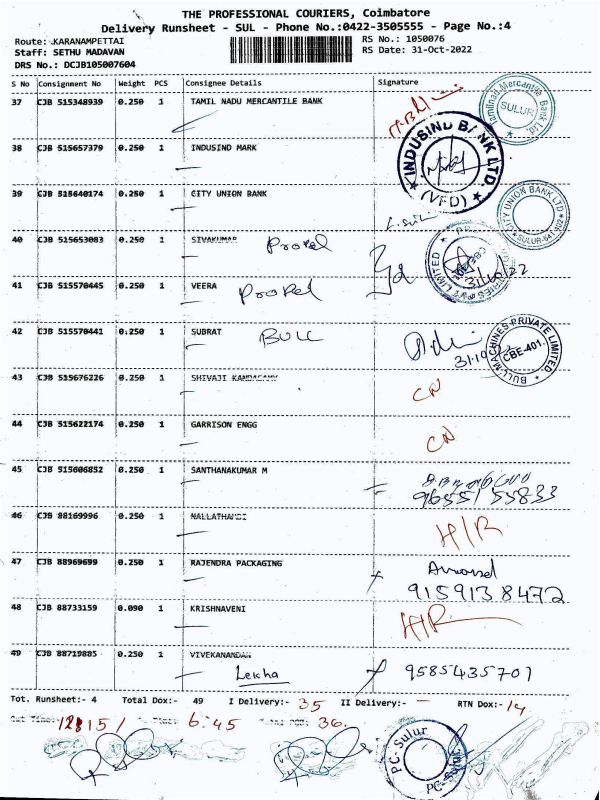 THE PROFESSIONAL COURIERS, Coimbatore
Delivery Runsheet - SUL - Phone No.:0422-3505555 - Page No.:4
Route: KARANAMPETTAI RS No.: 1050076
Staff: SETHU MADAVAN RS Date: 31-Oct-2022
DRS No.: DCJB105007604
S No Consignment No Weight PCS Consignee Details Signature
37 CJB 515348939 0.250 1 TAMIL NADU MERCANTILE BANK
Tamilnad Mercantile Bank Ltd. SULUR
38 CJB 515657379 0.250 1 INDUSIND MARK
INDUSIND BANK LTD. (VFD)
39 CJB 515640174 0.250 1 CITY UNION BANK
CITY UNION BANK LTD SULUR-641 402
40 CJB 515653003 0.250 1 SIVAKUMAR Propel
31/10/22
41 CJB 515570445 0.250 1 VEERA Propel
42 CJB 515570441 0.250 1 SUBRAT BULL
31.10
BULL MACHINES PRIVATE LIMITED. CBE-401.
43 CJB 515676226 0.250 1 SHIVAJI KANDASAMY CN
44 CJB 515622174 0.250 1 GARRISON ENGG CN
45 CJB 515606852 0.250 1 SANTHANAKUMAR M
9655155833
46 CJB 88169996 0.250 1 NALLATHAMBI H/R
47 CJB 88969699 0.250 1 RAJENDRA PACKAGING
9159138472
48 CJB 88733159 0.090 1 KRISHNAVENI H/R
49 CJB 88719885 0.250 1 VIVEKANANDAN
Lekha 9585435701
Tot. Runsheet:- 4 Total Dox:- 49 I Delivery:- 35 II Delivery:- - RTN Dox:- 14
6:45 36.
PC- Sulur